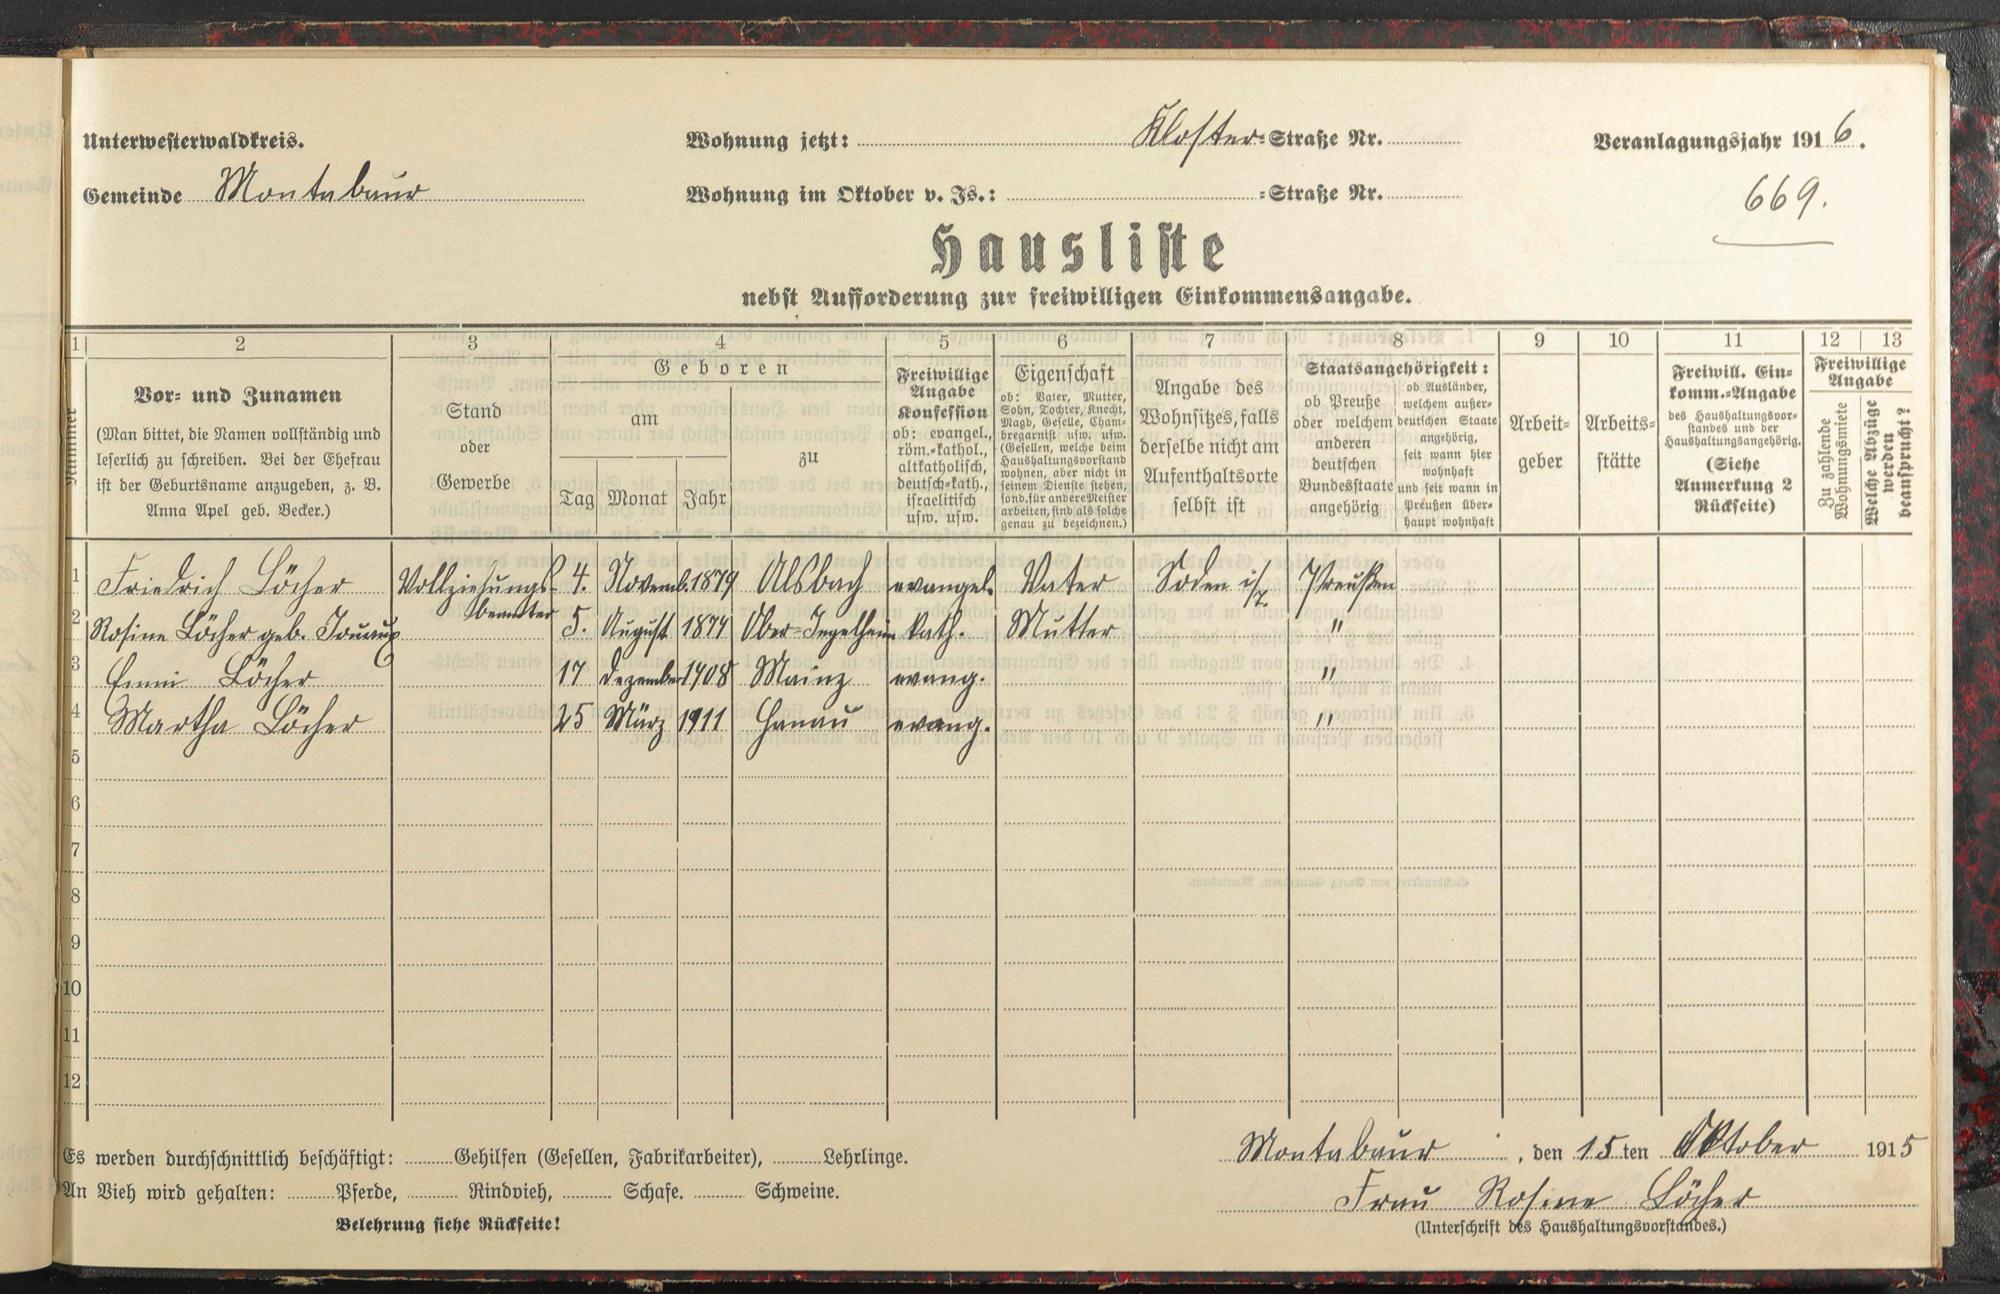 Unterwesterwaldkreis.
Wohnung jetzt: Kloster-Straße Nr.
Veranlagungsjahr 1916.
Gemeinde Montabaur
Wohnung im Oktober v. Js.: -Straße Nr.
669.
Hausliste
nebst Aufforderung zur freiwilligen Einkommensangabe.
1 2 3 4 5 6 7 8 9 10 11 12 13
Nummer
Vor- und Zunamen
(Man bittet, die Namen vollständig und
leserlich zu schreiben. Bei der Ehefrau
ist der Geburtsname anzugeben, z. B.
Anna Apel geb. Becker.)
Stand
oder
Gewerbe
Geboren
am
Tag Monat Jahr
zu
Freiwillige
Angabe
Konfession
ob: evangel.,
röm.-kathol.,
altkatholisch,
deutsch-kath.,
israelitisch
usw. usw.
Eigenschaft
ob: Vater, Mutter,
Sohn, Tochter, Knecht,
Magd, Geselle, Cham-
bregarnist usw. usw.
(Gesellen, welche beim
Haushaltungsvorstand
wohnen, aber nicht in
seinem Dienste stehen,
sond. für andere Meister
arbeiten, sind als solche
genau zu bezeichnen.)
Angabe des
Wohnsitzes, falls
derselbe nicht am
Aufenthaltsorte
selbst ist
Staatsangehörigkeit:
ob Preuße
oder welchem
anderen
deutschen
Bundesstaate
angehörig
ob Ausländer,
welchem außer-
deutschen Staate
angehörig,
seit wann hier
wohnhaft
und seit wann in
Preußen über-
haupt wohnhaft
Arbeit-
geber
Arbeits-
stätte
Freiwill. Ein-
komm.-Angabe
des Haushaltungsvor-
standes und der
Haushaltungsangehörig.
(Siehe
Anmerkung 2
Rückseite)
Freiwillige
Angabe
Zu zahlende
Wohnungsmiete
Welche Abzüge
werden
beansprucht?
1 Friedrich Löcher Vollziehungs- 4. Novemb. 1879 Alsbach evangel. Vater Soden i/T. Preußen
beamter
2 Rosine Löcher geb. 5. August 1874 Ober-Ingelheim kath. Mutter "
3 Emmi Löcher 17 Dezember 1908 Mainz evang. "
4 Martha Löcher 25 März 1911 Hanau evang. "
5
6
7
8
9
10
11
12
Es werden durchschnittlich beschäftigt: Gehilfen (Gesellen, Fabrikarbeiter), Lehrlinge.
An Vieh wird gehalten: Pferde, Rindvieh, Schafe. Schweine.
Belehrung siehe Rückseite!
Montabaur, den 15ten Oktober 1915
Frau Rosine Löcher
(Unterschrift des Haushaltungsvorstandes.)